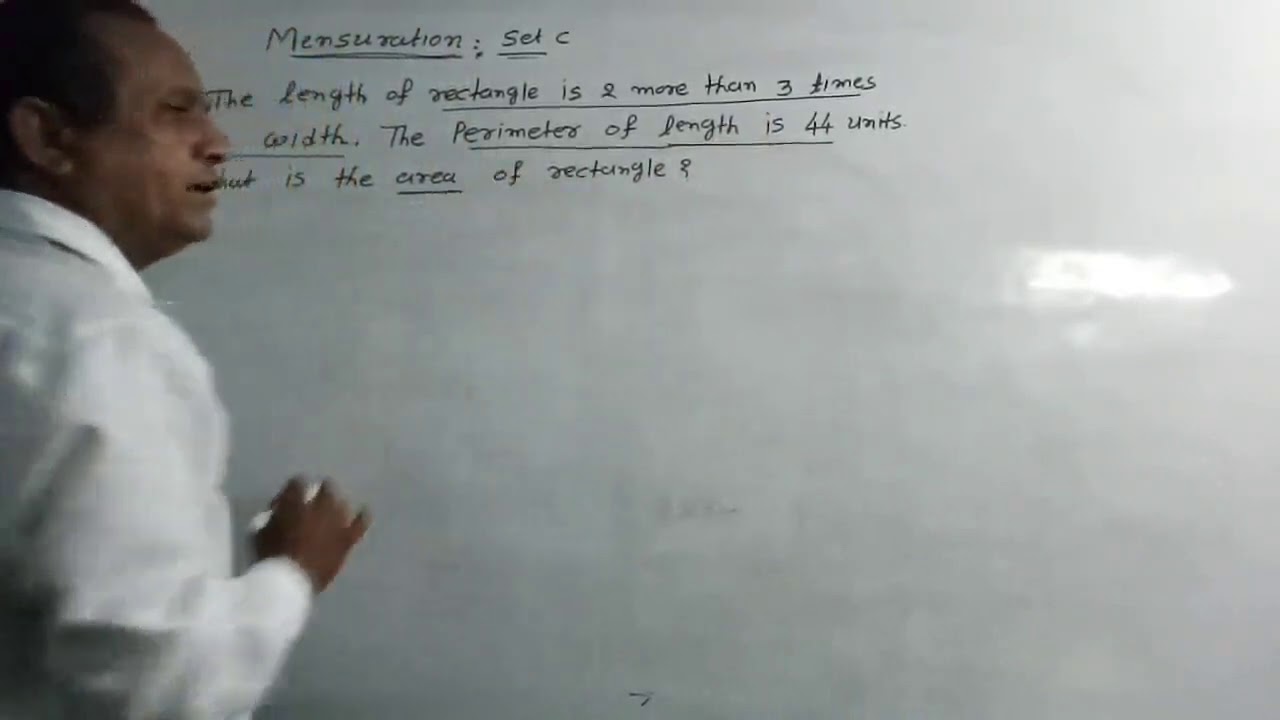 Mensuration: Set C
The length of rectangle is 2 more than 3 times
width. The Perimeter of length is 44 units.
is the area of rectangle?